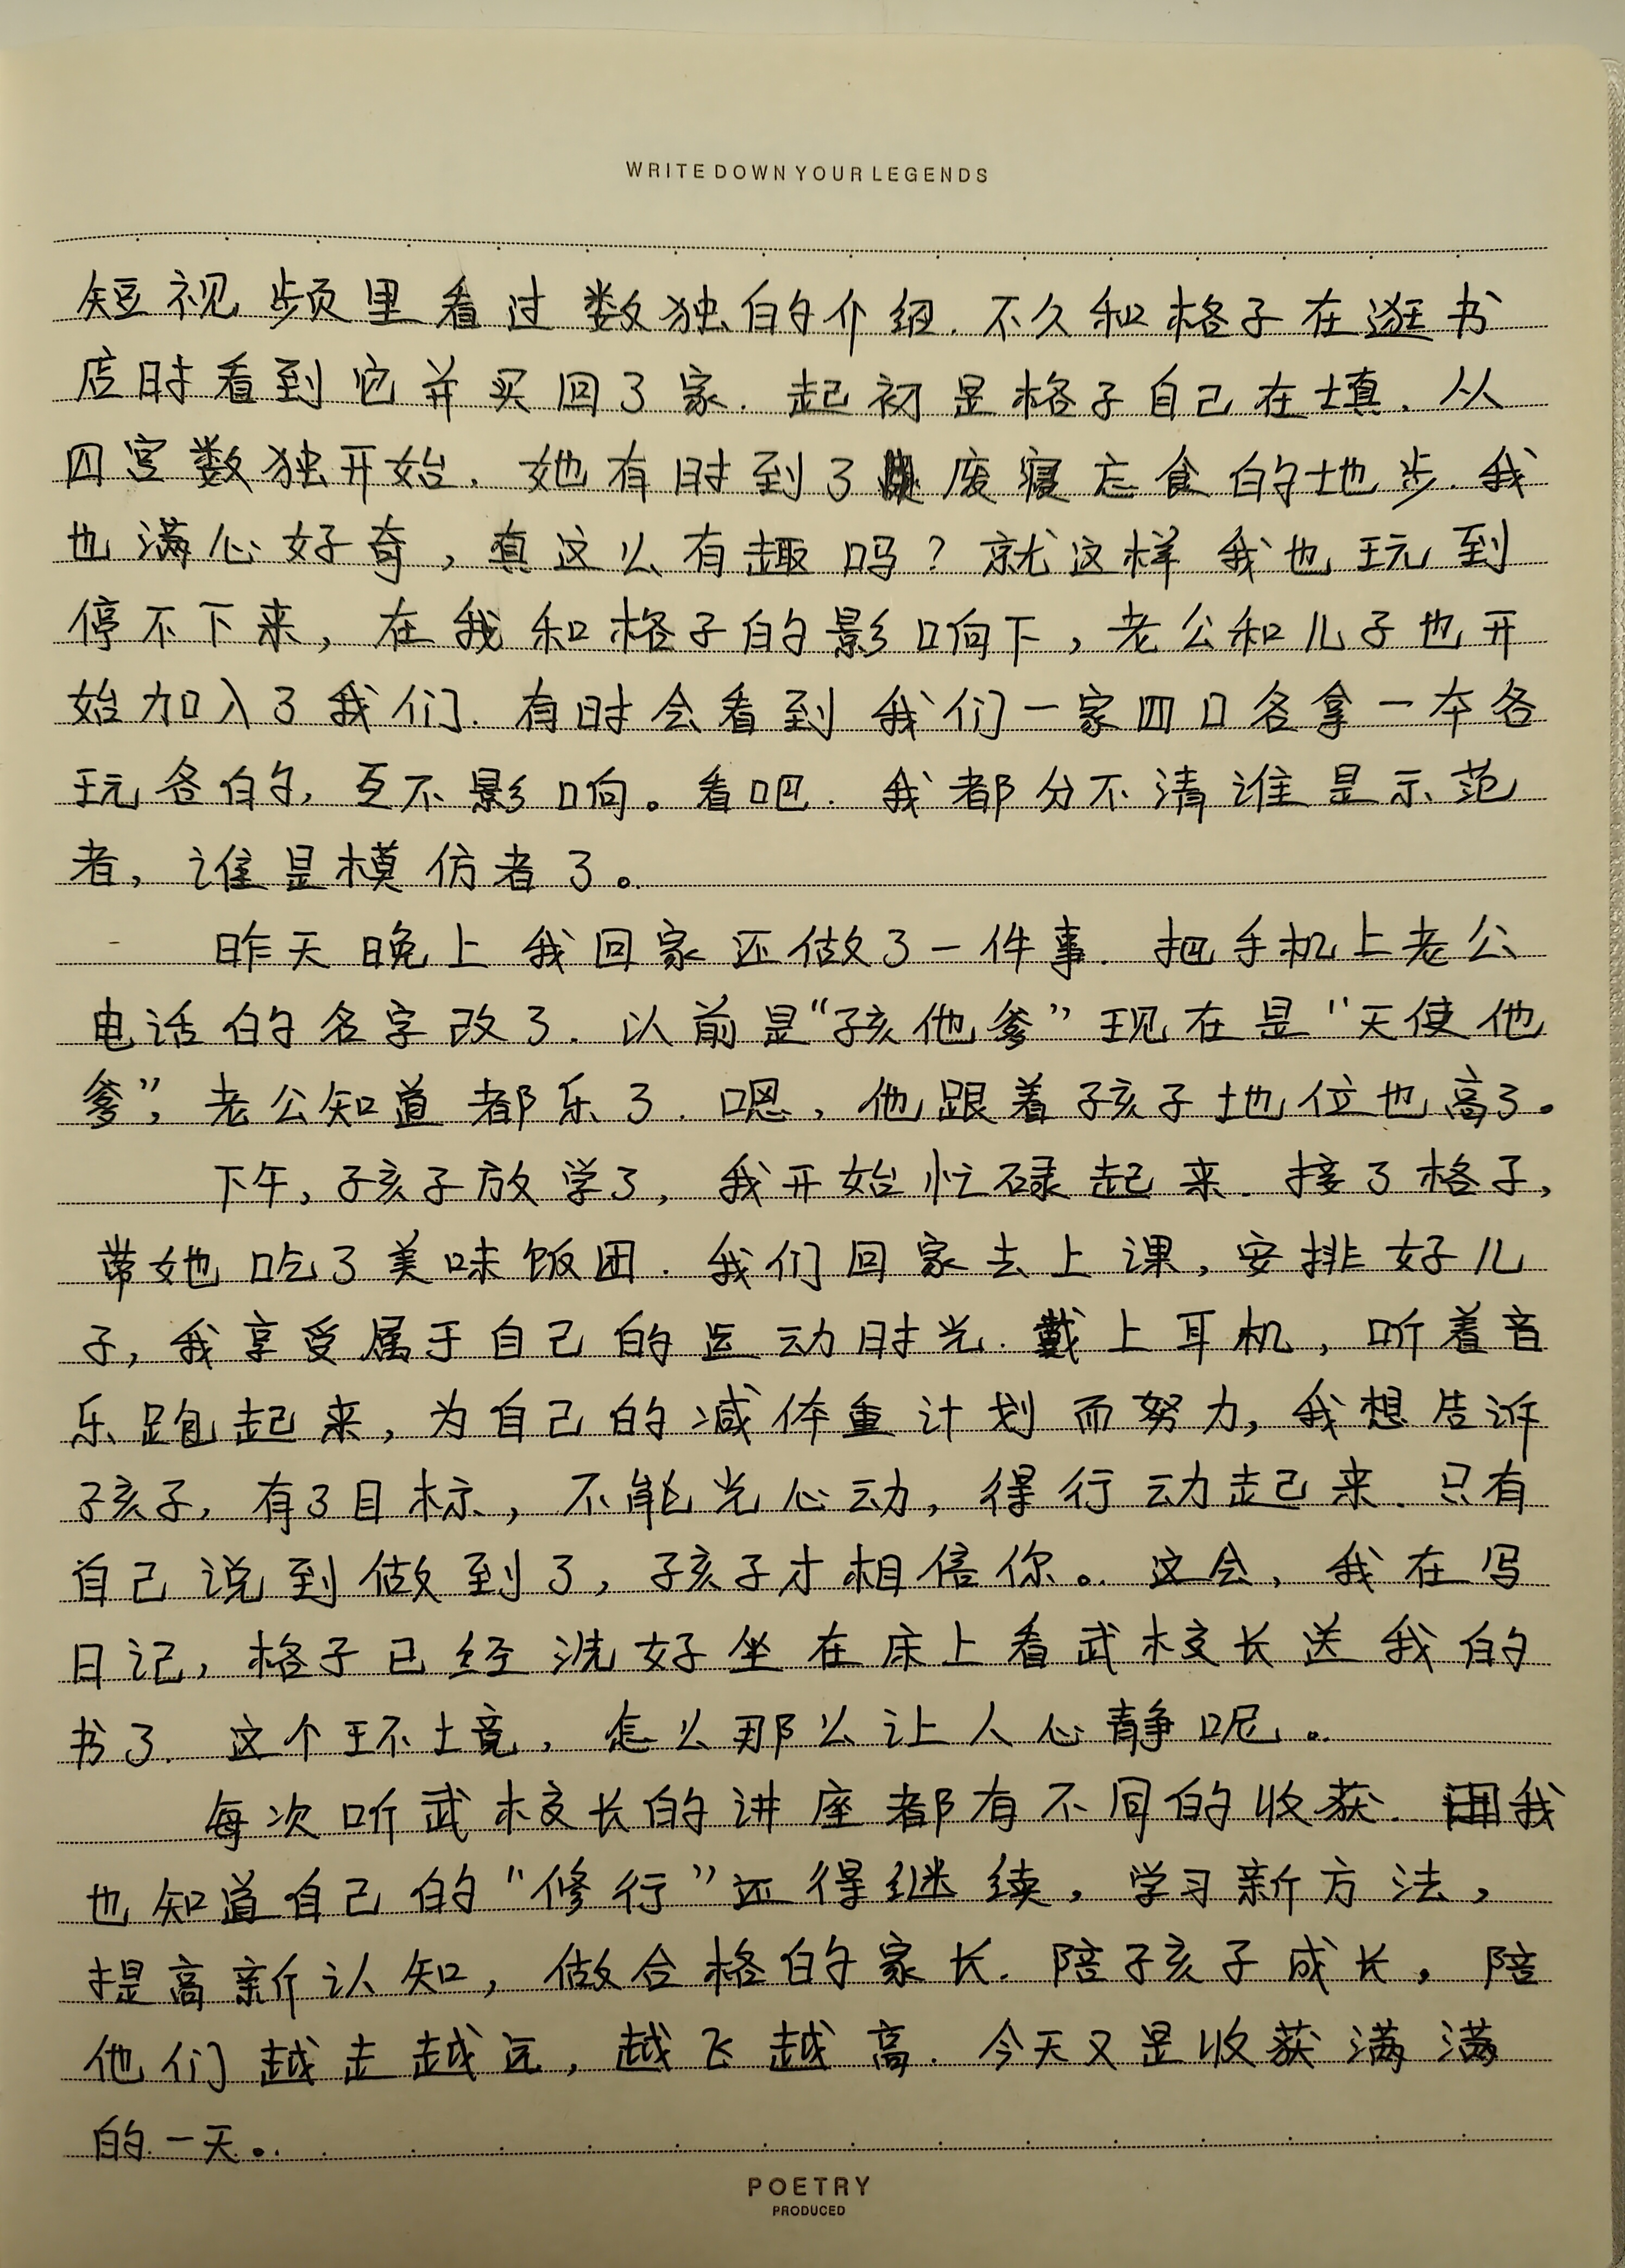 WRITE DOWN YOUR LEGENDS
短视频里看过数独的介绍.不久和格子在逛书
店时看到它并买回了家.起初是格子自己在填.从
四宫数独开始.她有时到了废寝忘食的地步.我
也满心好奇,真这么有趣吗?就这样我也玩到
停不下来,在我和格子的影响下,老公和儿子也开
始加入了我们.有时会看到我们一家四口各拿一本各
玩各的,互不影响。看吧.我都分不清谁是示范
者,谁是模仿者了。
昨天晚上我回家还做了一件事.把手机上老公
电话的名字改了.以前是“孩他爹”现在是“天使他
爹”,老公知道都乐了.嗯,他跟着孩子地位也高了。
下午,孩子放学了,我开始忙碌起来.接了格子,
带她吃了美味饭团.我们回家去上课,安排好儿
子,我享受属于自己的运动时光.戴上耳机,听着音
乐跑起来,为自己的减体重计划而努力,我想告诉
孩子,有了目标,不能光心动,得行动起来.只有
自己说到做到了,孩子才相信你。这会,我在写
日记,格子已经洗好坐在床上看武校长送我的
书了.这个环境,怎么那么让人心静呢。
每次听武校长的讲座都有不同的收获.我
也知道自己的“修行”还得继续,学习新方法,
提高新认知,做合格的家长.陪孩子成长,陪
他们越走越远,越飞越高.今天又是收获满满
的一天。
POETRY
PRODUCED